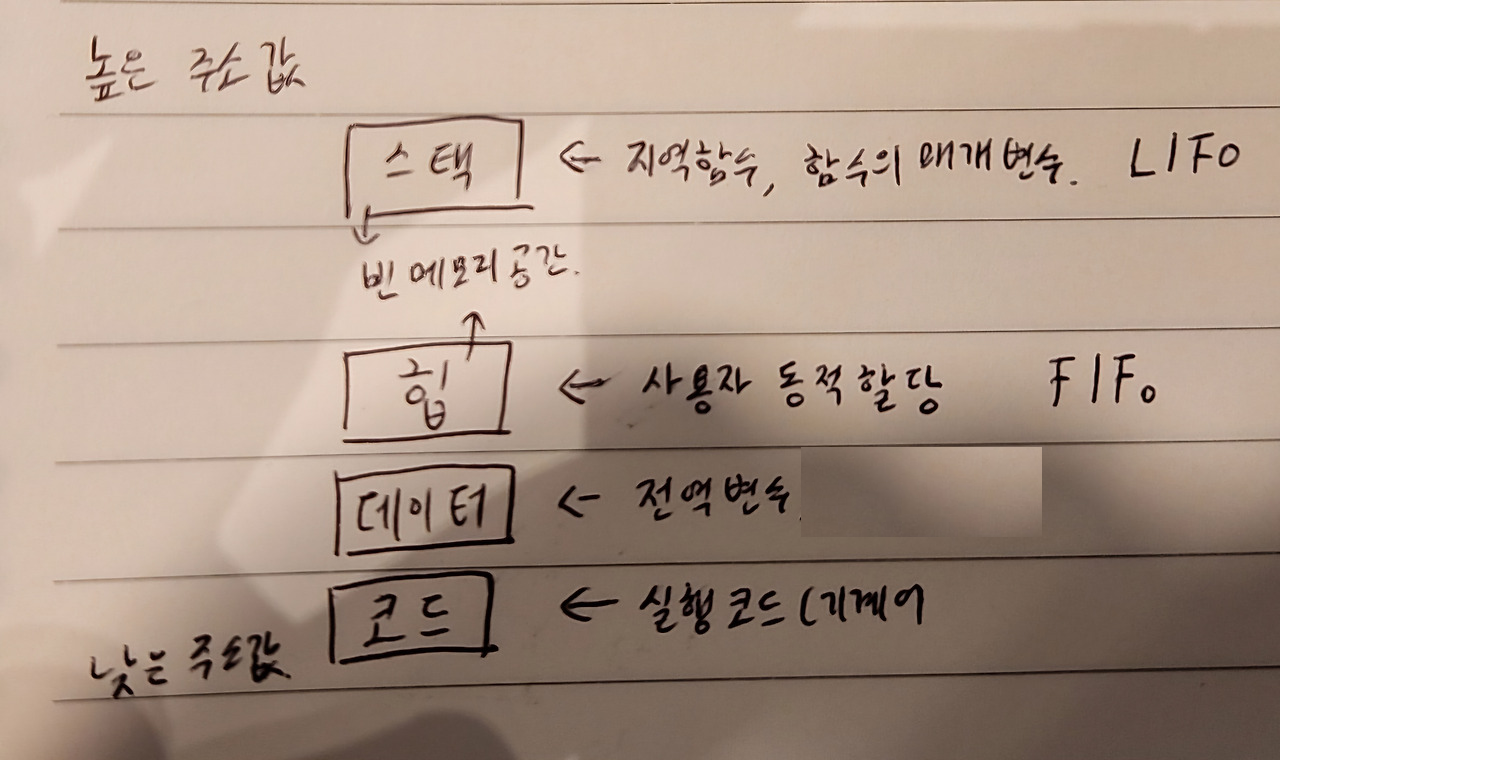 높은 주소값
스택 ← 지역함수, 함수의 매개변수. LIFO
빈 메모리 공간.
힙 ← 사용자 동적할당 FIFO
데이터 ← 전역변수
코드 ← 실행코드 (기계어
낮은 주소값